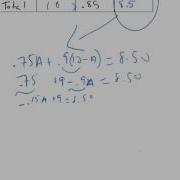 Total 10 .85 8.5
.75A + .9(10-A) = 8.50
.75 +9 - .9A = 8.50
-.15A + 9 = 8.50